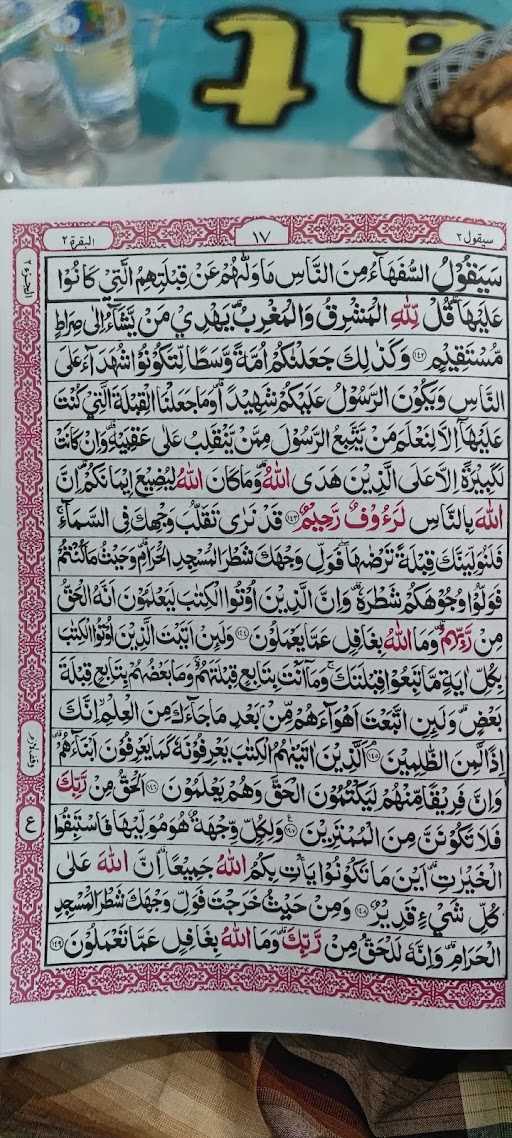 at
سيقول ٢
١٧
البقرة ٢
سَيَقُوْلُ السُّفَهَآءُ مِنَ النَّاسِ مَا وَلّٰىهُمْ عَنْ قِبْلَتِهِمُ الَّتِيْ كَانُوْا
عَلَيْهَاۗ قُلْ لِّلّٰهِ الْمَشْرِقُ وَالْمَغْرِبُۗ يَهْدِيْ مَنْ يَّشَاۤءُ اِلٰى صِرَاطٍ
مُّسْتَقِيْمٍ ١٤٢ وَكَذٰلِكَ جَعَلْنٰكُمْ اُمَّةً وَّسَطًا لِّتَكُوْنُوْا شُهَدَاۤءَ عَلَى
النَّاسِ وَيَكُوْنَ الرَّسُوْلُ عَلَيْكُمْ شَهِيْدًاۗ وَمَا جَعَلْنَا الْقِبْلَةَ الَّتِيْ كُنْتَ
عَلَيْهَآ اِلَّا لِنَعْلَمَ مَنْ يَّتَّبِعُ الرَّسُوْلَ مِمَّنْ يَّنْقَلِبُ عَلٰى عَقِبَيْهِۗ وَاِنْ كَانَتْ
لَكَبِيْرَةً اِلَّا عَلَى الَّذِيْنَ هَدَى اللّٰهُۗ وَمَا كَانَ اللّٰهُ لِيُضِيْعَ اِيْمَانَكُمْۗ اِنَّ
اللّٰهَ بِالنَّاسِ لَرَءُوْفٌ رَّحِيْمٌ ١٤٣ قَدْ نَرٰى تَقَلُّبَ وَجْهِكَ فِى السَّمَاۤءِۚ
فَلَنُوَلِّيَنَّكَ قِبْلَةً تَرْضٰىهَاۖ فَوَلِّ وَجْهَكَ شَطْرَ الْمَسْجِدِ الْحَرَامِۗ وَحَيْثُ مَا كُنْتُمْ
فَوَلُّوْا وُجُوْهَكُمْ شَطْرَهٗۗ وَاِنَّ الَّذِيْنَ اُوْتُوا الْكِتٰبَ لَيَعْلَمُوْنَ اَنَّهُ الْحَقُّ
مِنْ رَّبِّهِمْۗ وَمَا اللّٰهُ بِغَافِلٍ عَمَّا يَعْمَلُوْنَ ١٤٤ وَلَىِٕنْ اَتَيْتَ الَّذِيْنَ اُوْتُوا الْكِتٰبَ
بِكُلِّ اٰيَةٍ مَّا تَبِعُوْا قِبْلَتَكَۚ وَمَآ اَنْتَ بِتَابِعٍ قِبْلَتَهُمْۚ وَمَا بَعْضُهُمْ بِتَابِعٍ قِبْلَةَ
بَعْضٍۗ وَلَىِٕنِ اتَّبَعْتَ اَهْوَاۤءَهُمْ مِّنْۢ بَعْدِ مَا جَاۤءَكَ مِنَ الْعِلْمِۙ اِنَّكَ
اِذًا لَّمِنَ الظّٰلِمِيْنَ ١٤٥ اَلَّذِيْنَ اٰتَيْنٰهُمُ الْكِتٰبَ يَعْرِفُوْنَهٗ كَمَا يَعْرِفُوْنَ اَبْنَاۤءَهُمْۗ
وَاِنَّ فَرِيْقًا مِّنْهُمْ لَيَكْتُمُوْنَ الْحَقَّ وَهُمْ يَعْلَمُوْنَ ١٤٦ اَلْحَقُّ مِنْ رَّبِّكَ
فَلَا تَكُوْنَنَّ مِنَ الْمُمْتَرِيْنَ ١٤٧ وَلِكُلٍّ وِّجْهَةٌ هُوَ مُوَلِّيْهَا فَاسْتَبِقُوا
الْخَيْرٰتِۗ اَيْنَ مَا تَكُوْنُوْا يَأْتِ بِكُمُ اللّٰهُ جَمِيْعًاۗ اِنَّ اللّٰهَ عَلٰى
كُلِّ شَيْءٍ قَدِيْرٌ ١٤٨ وَمِنْ حَيْثُ خَرَجْتَ فَوَلِّ وَجْهَكَ شَطْرَ الْمَسْجِدِ
الْحَرَامِۗ وَاِنَّهٗ لَلْحَقُّ مِنْ رَّبِّكَۗ وَمَا اللّٰهُ بِغَافِلٍ عَمَّا تَعْمَلُوْنَ ١٤٩
ع